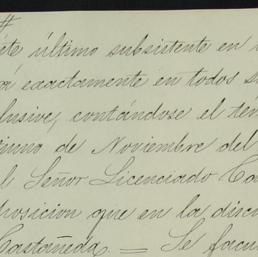 #
éte último subsistente en s
rá exactamente en todos su
clusive, contándose el tér
timo de Noviembre del
l Señor Licenciado Ca
posicion que en la discu
Castañeda. = Se facul